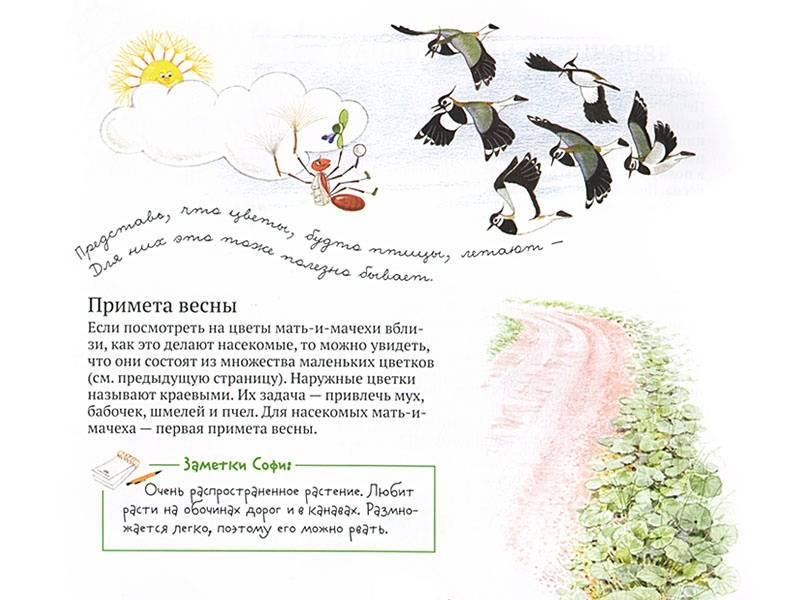 Представь, что цветы, будто птицы, летают —
Для них это тоже полезно бывает.
Примета весны
Если посмотреть на цветы мать-и-мачехи вбли-
зи, как это делают насекомые, то можно увидеть,
что они состоят из множества маленьких цветков
(см. предыдущую страницу). Наружные цветки
называют краевыми. Их задача — привлечь мух,
бабочек, шмелей и пчел. Для насекомых мать-и-
мачеха — первая примета весны.
Заметки Софи:
Очень распространенное растение. Любит
расти на обочинах дорог и в канавах. Размно-
жается легко, поэтому его можно рвать.